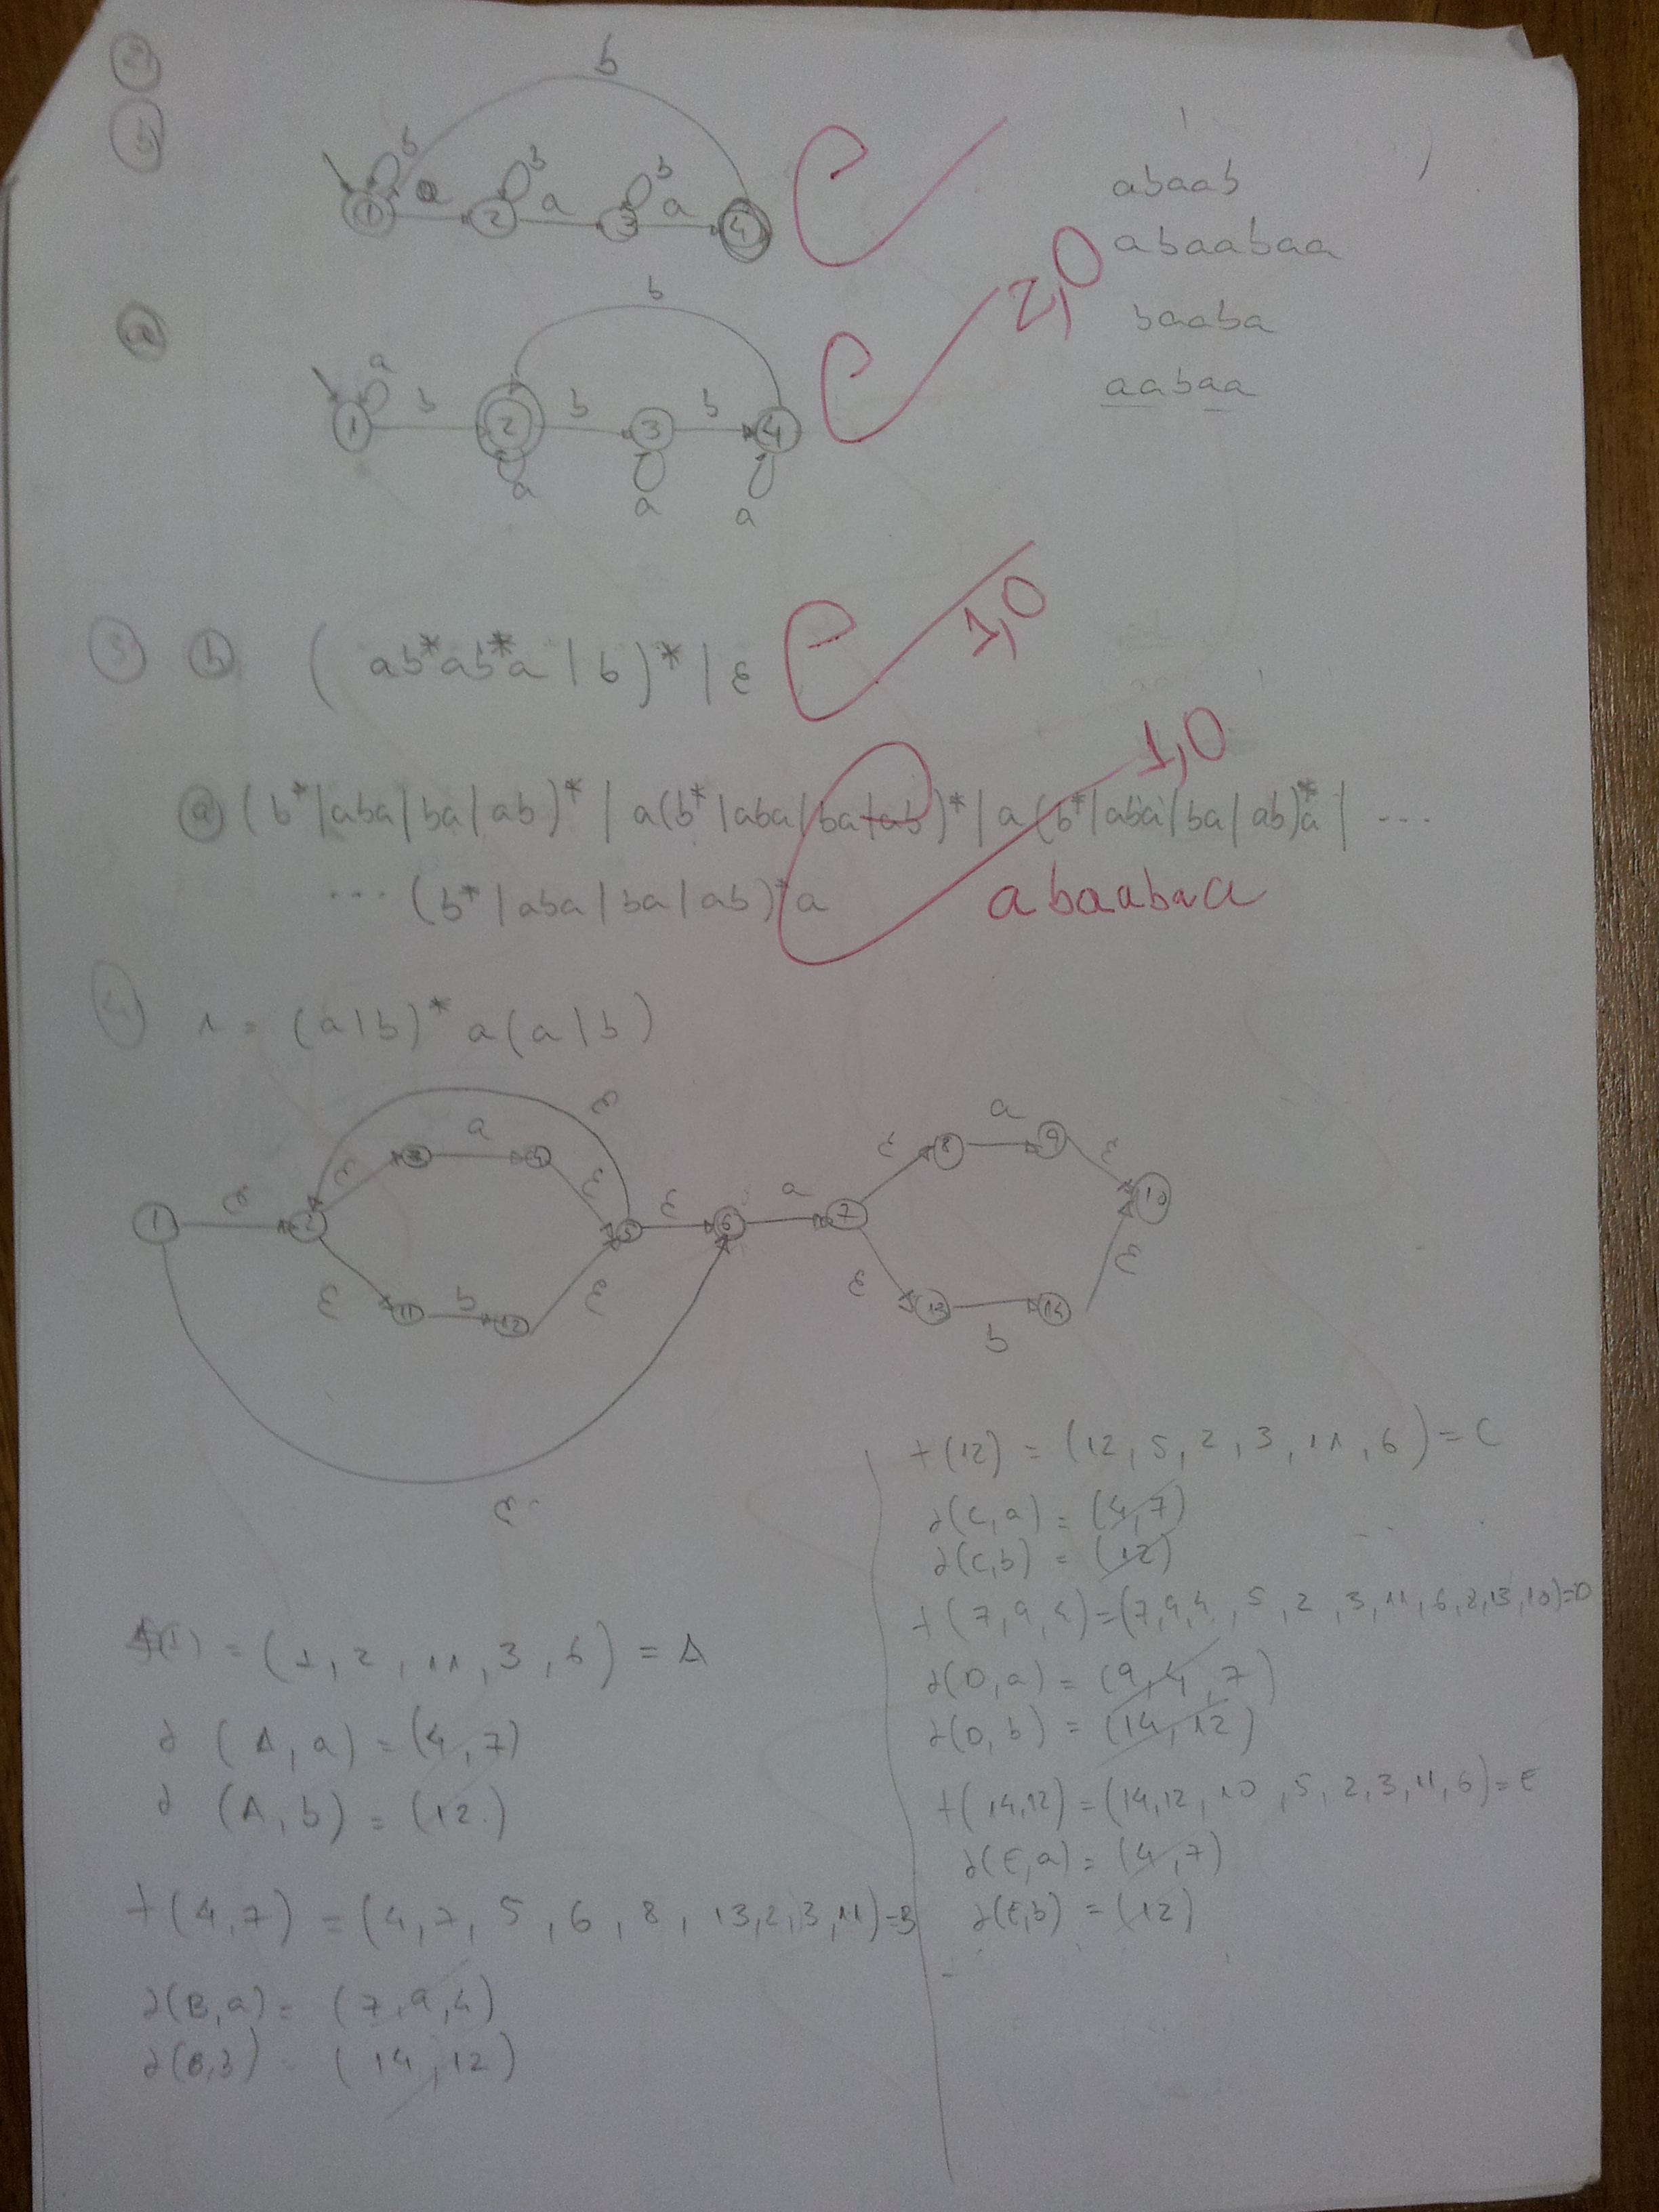 2
b
b
b b b
a a a
1 2 3 4
abaab
abaabaa
baaba
aabaa
2,0
a
b
a
b b b
1 2 3 4
a a a
3 b ( ab*ab*a | b )* | ε
1,0
a (b*|aba|ba|ab)* | a(b*|aba|ba|ab)* | a(b*|aba|ba|ab)*a | ...
... (b*|aba|ba|ab)*a
1,0
abaabaa
4 r = (a|b)* a(a|b)
ε
a a
ε 3 4 ε ε 8 9 ε
1 ε 2 5 ε 6 a 7 10
ε 11 b 12 ε ε 13 14 ε
b
ε
f(1) = (1, 2, 11, 3, 6) = A
∂ (A, a) = (4, 7)
∂ (A, b) = (12)
f(4,7) = (4, 7, 5, 6, 8, 13,2,3,11)=B
∂(B,a) = (7,9,4)
∂(B,b) = (14,12)
f(12) = (12, 5, 2, 3, 11, 6) = C
∂(C,a) = (4,7)
∂(C,b) = (12)
f(7,9,4)=(7,9,4, 5, 2, 3, 11, 6, 8, 13, 10)=D
∂(D,a) = (9,4,7)
∂(D,b) = (14,12)
f(14,12) = (14,12, 10, 5, 2, 3, 11, 6)=E
∂(E,a) = (4,7)
∂(E,b) = (12)